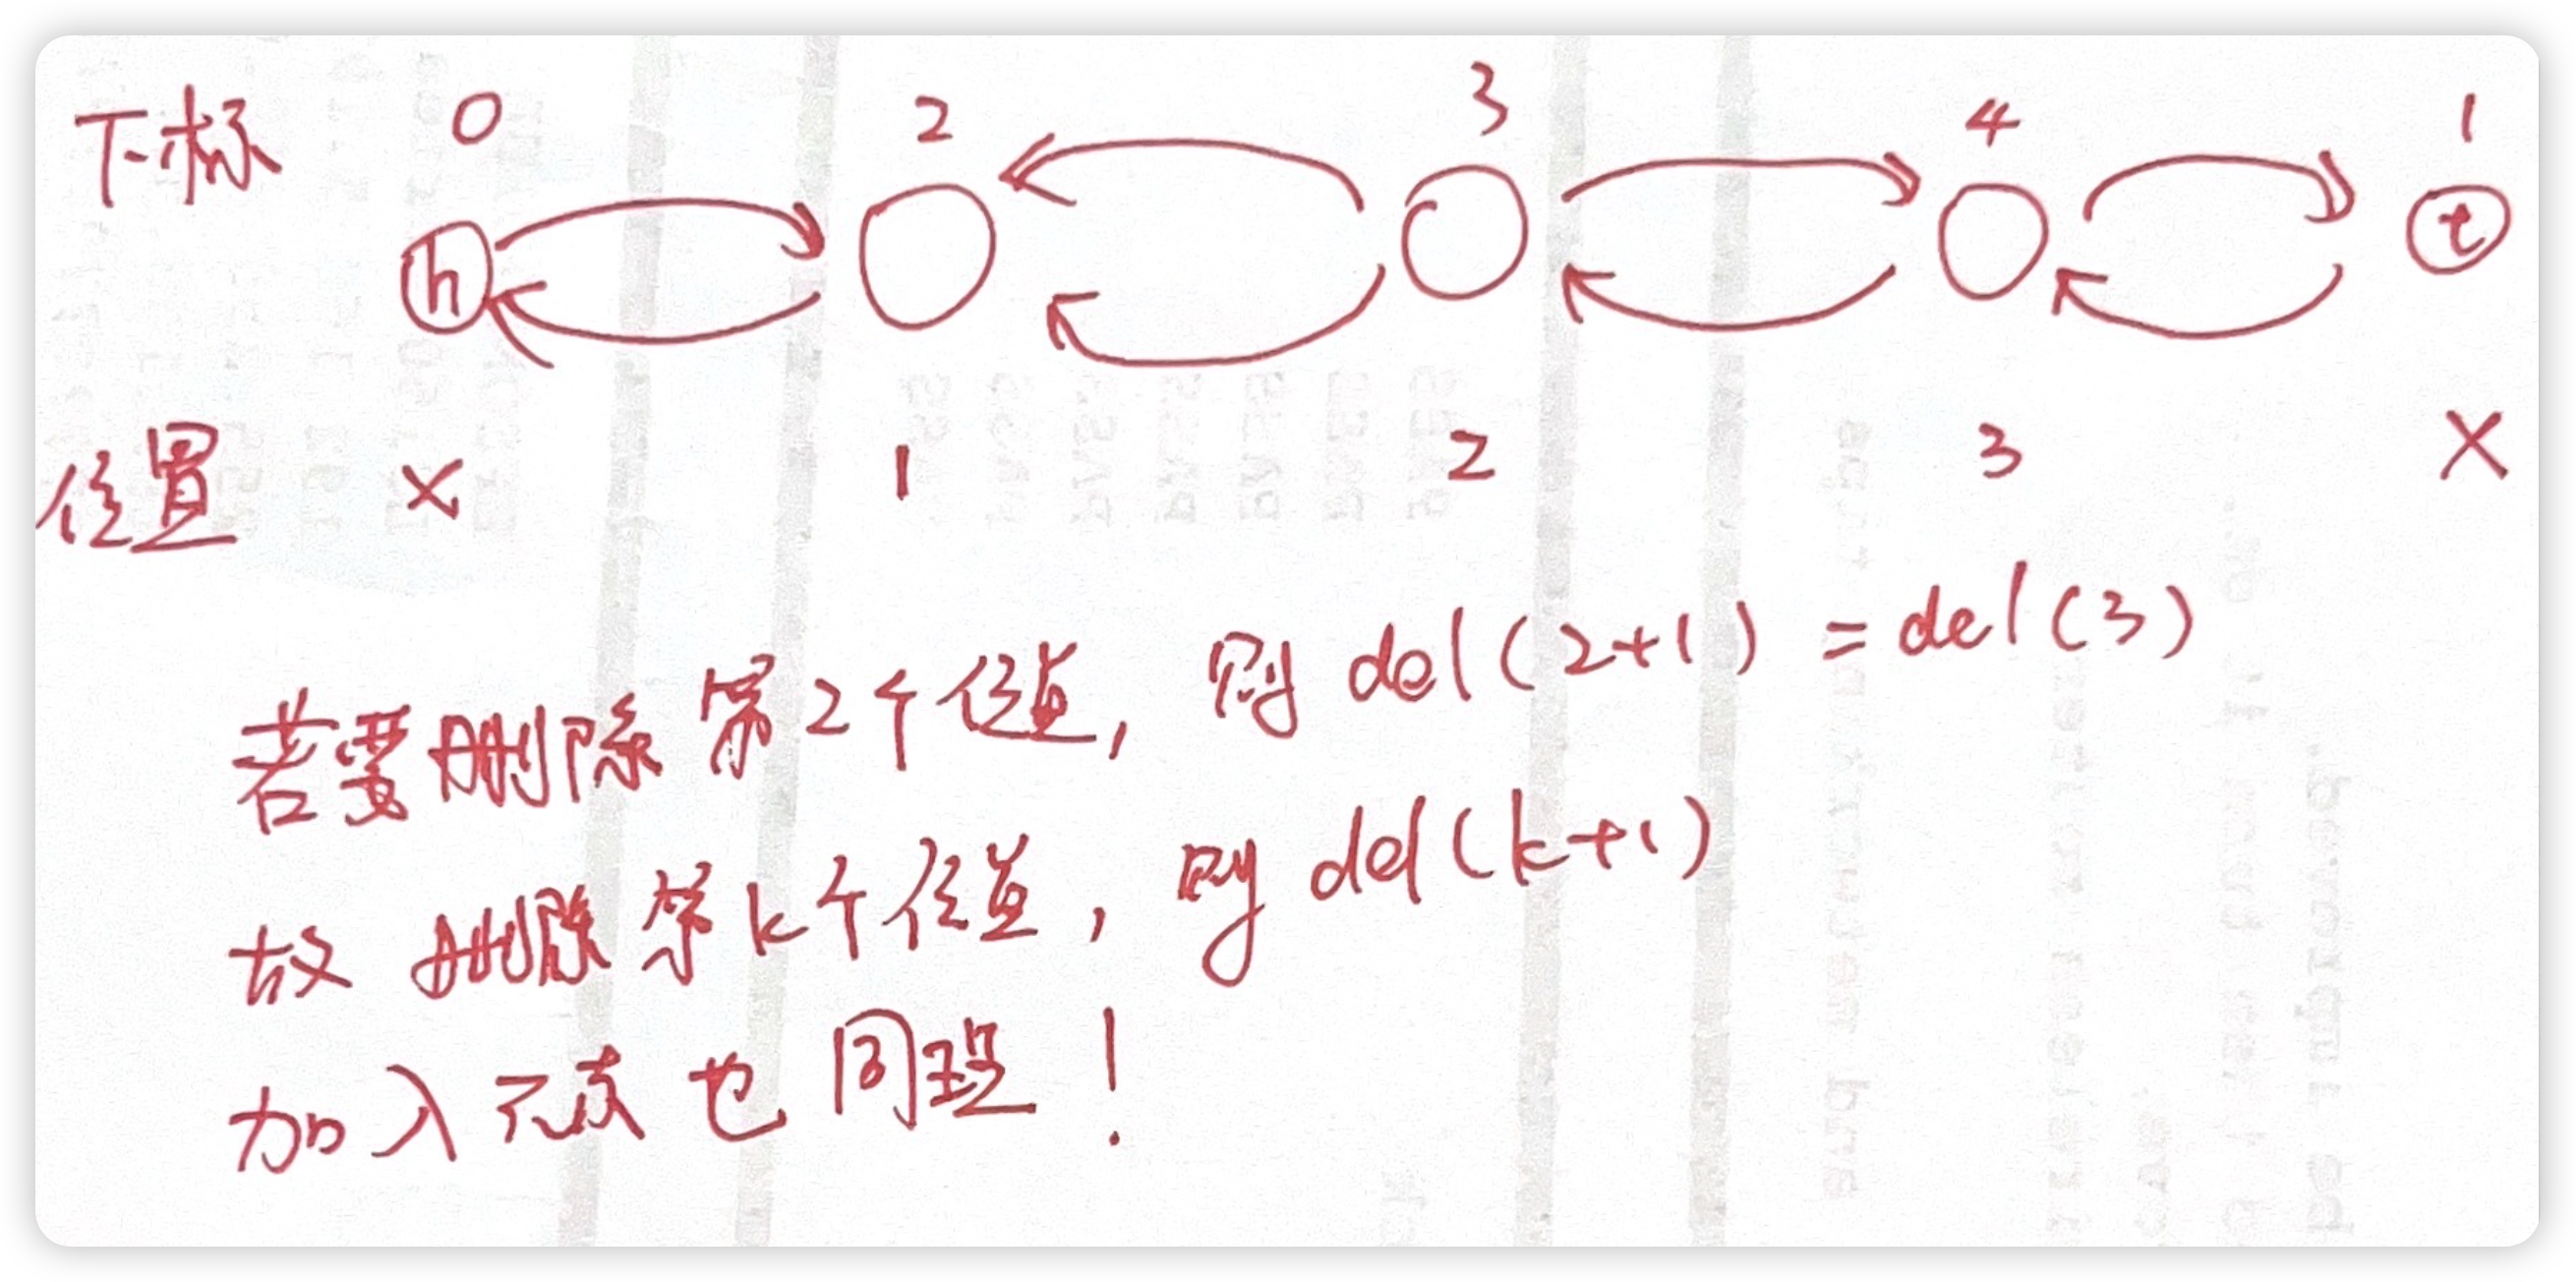 下标 0 2 3 4 1
h t
位置 × 1 2 3 ×
若要删除第2个位置, 则 del(2+1) = del(3)
故 删除第k个位置, 则 del(k+1)
加入元素也同理!